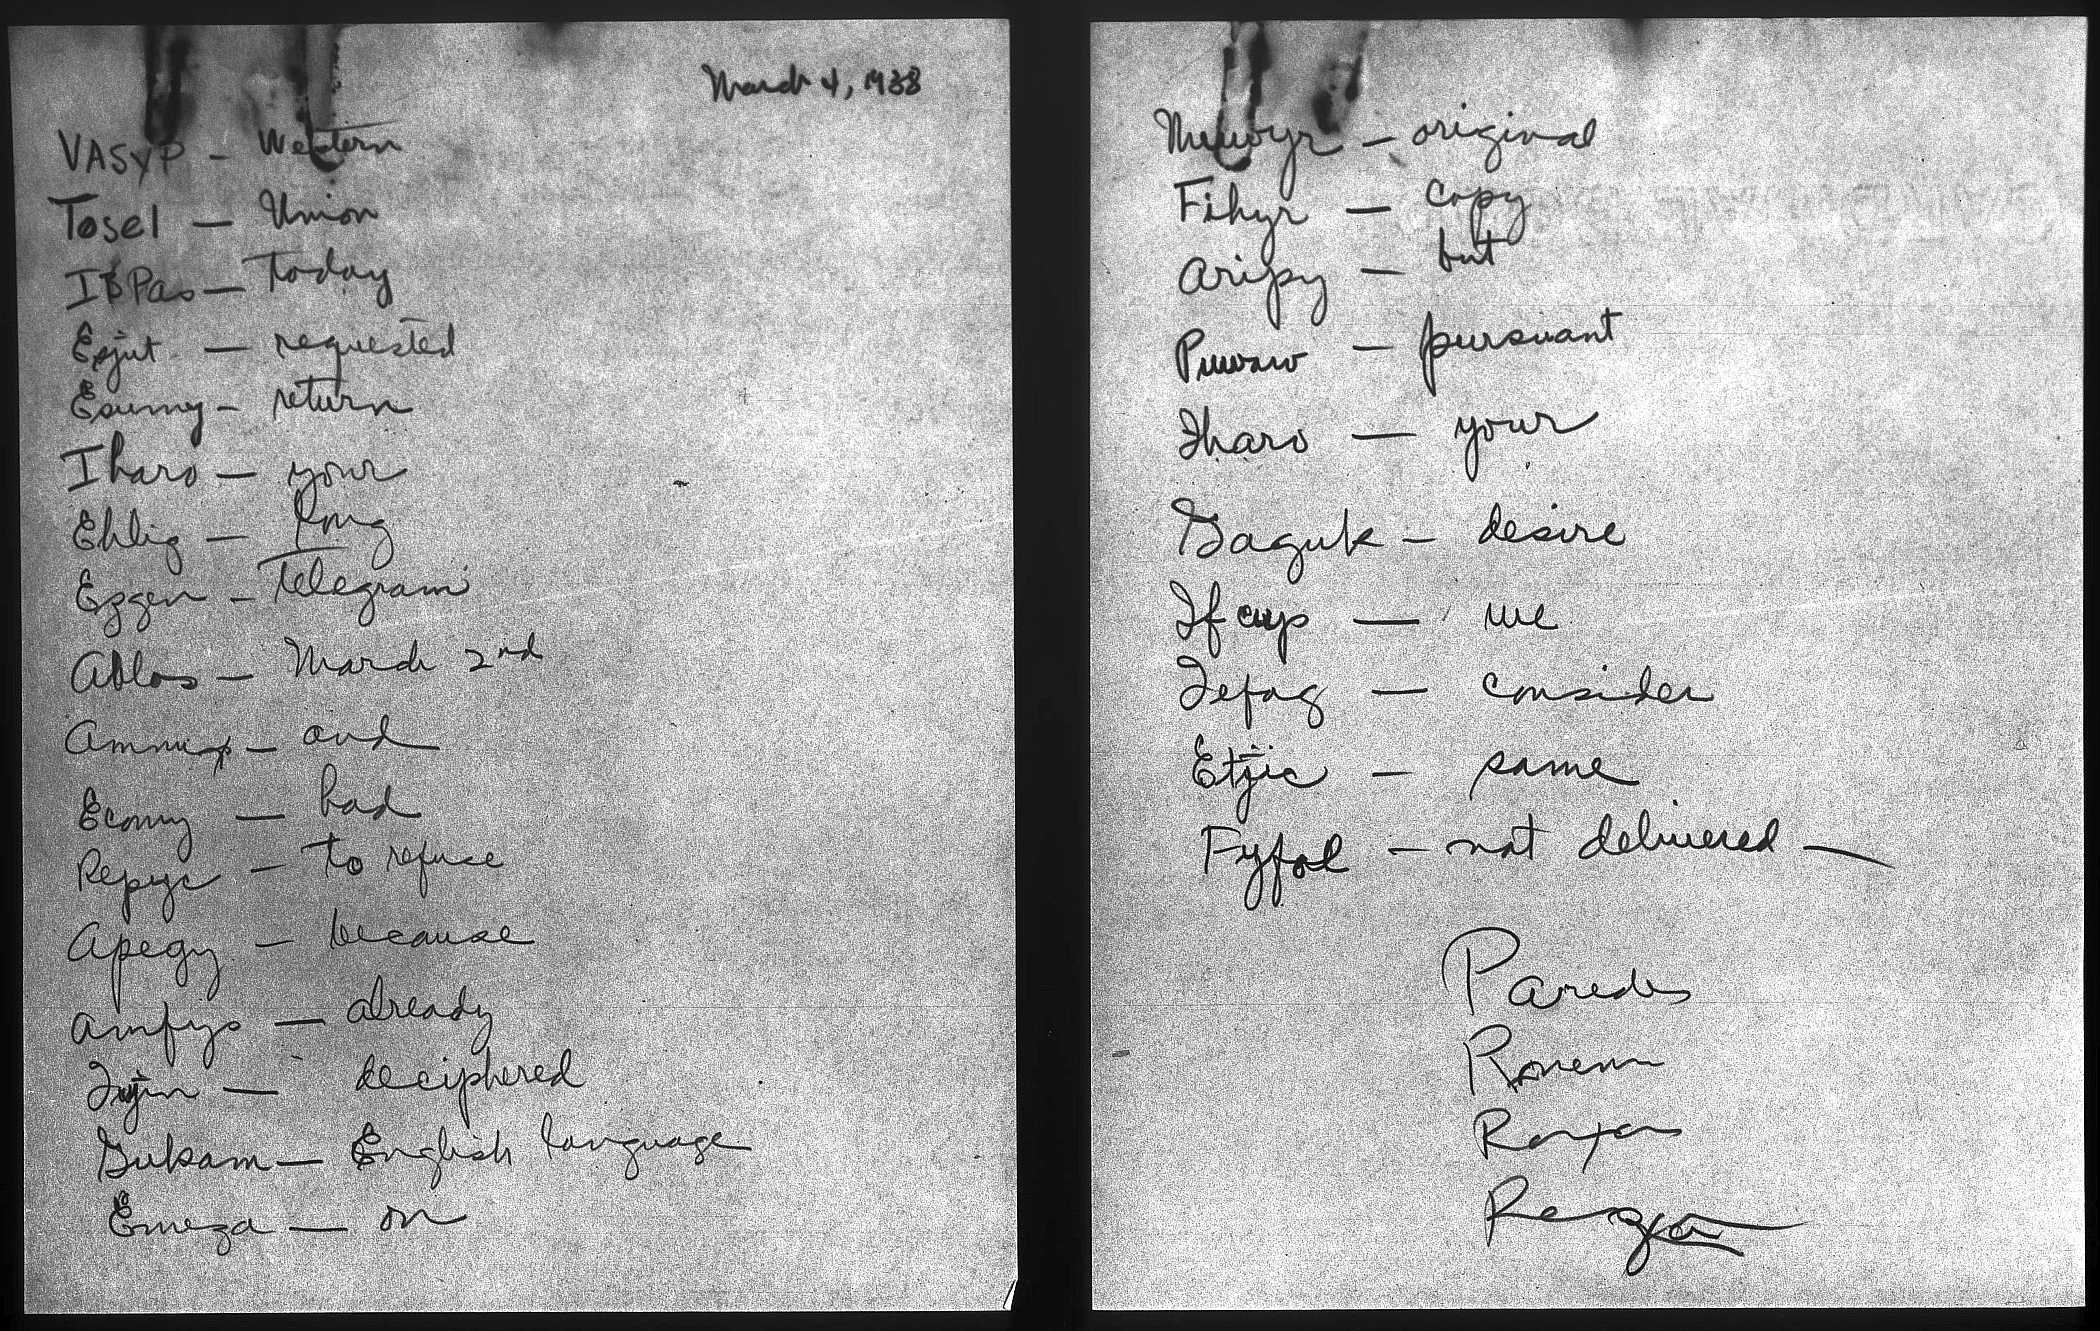 March 4, 1938
VASYP - Western
Tosel - Union
IBPas - Today
Epjut - requested
Esumy - return
Iharo - your
Ehlig - long
Ezgen - Telegram
Ablos - March 2nd
Ammup - and
Econy - had
Repyc - to refuse
Apegy - because
Amfys - already
- deciphered
Gukam - English language
Emeza - on
- original
Fihyr - copy
Aripy - but
- pursuant
Iharo - your
Gaguk - desire
- we
Iefag - consider
Etjic - same
Fyfol - not delivered -
Paredes